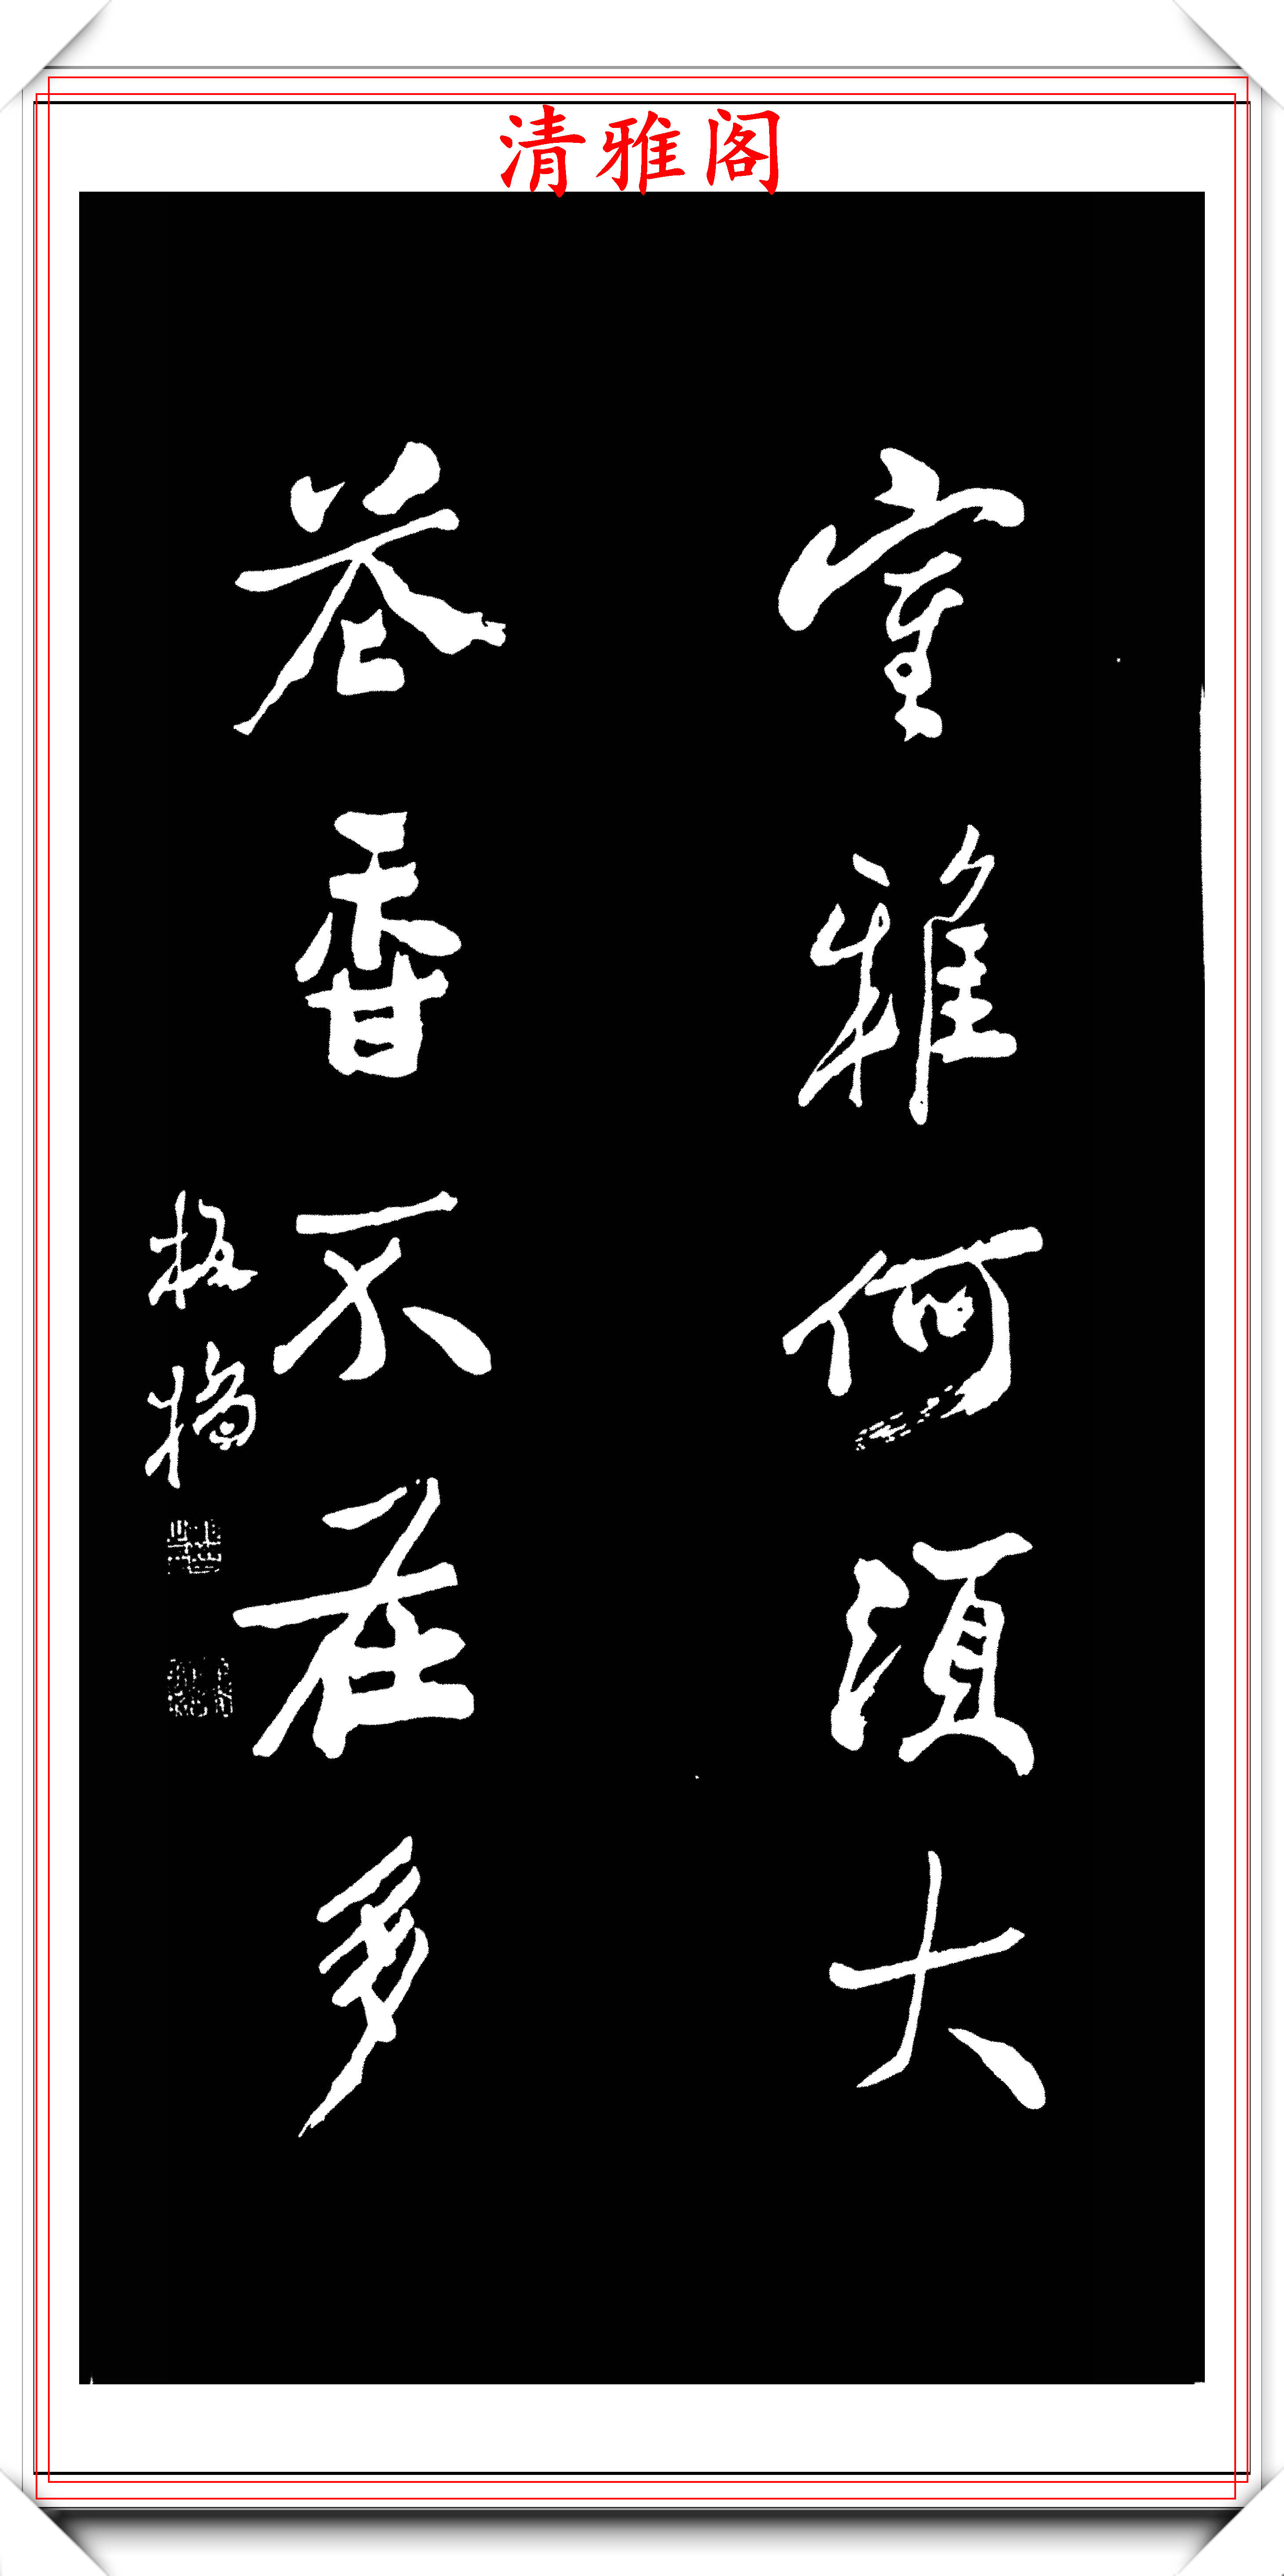 清雅阁
室雅何須大
花香不在多
板橋